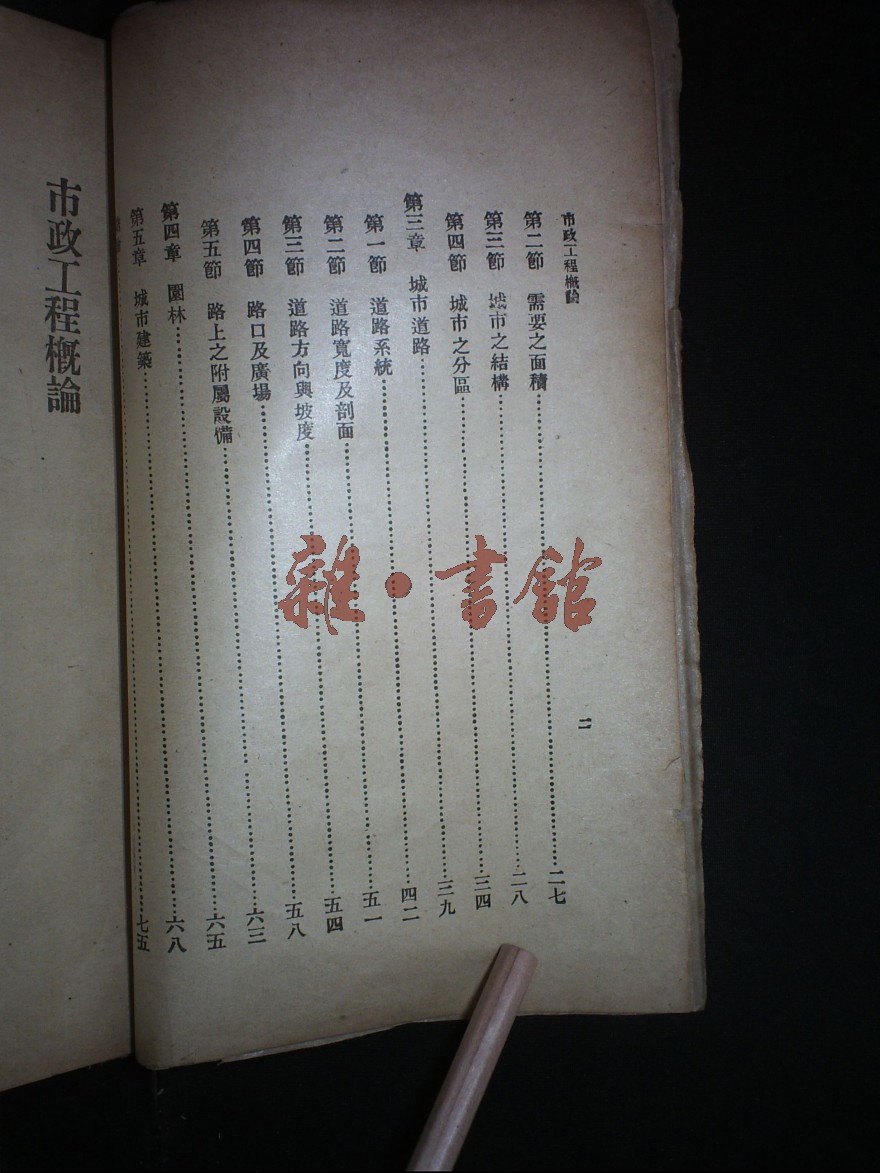 市政工程概論
第二節　需要之面積……二七
第三節　城市之結構……二八
第四節　城市之分區……三四
第三章　城市道路……三九
第一節　道路系統……四二
第二節　道路寬度及剖面……五一
第三節　道路方向與坡度……五四
第四節　路口及廣場……五八
第五節　路上之附屬設備……六三
第四章　園林……六五
第五章　城市建築……六八
……七五
二
市政工程概論
雜·書館